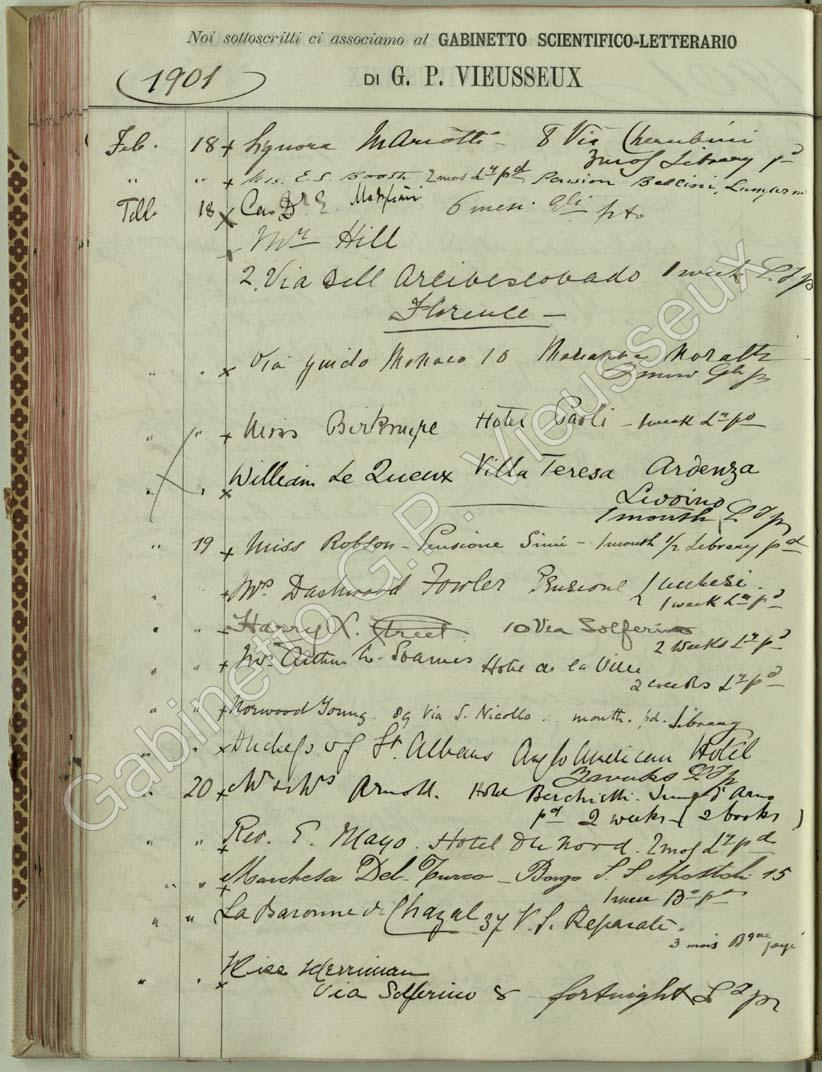 Noi sottoscritti ci associamo al GABINETTO SCIENTIFICO-LETTERARIO
1901
DI G. P. VIEUSSEUX
Feb. 18 + Signora Mariotti - 8 Via Cherubini
Library pd
" " + E. S. Booth. 2 mos Lry pd Pension Bellini, Lungarno
18 x 6 mesi
Mrs Hill
2. Via dell Arcivescovado 1 week
Florence -
" " x Via Guido Monaco 10 Marianna Moratti
" " + Miss Hotel Paoli - 1 week Lry pd
" " x William Le Queux Villa Teresa Ardenza
Livorno
1 month
" 19 + Miss Robson - Pensione Simi - 1 month 1/2 Library pd
" " + Mrs Dashwood Fowler Pensione Lucchesi.
1 week Lry pd
" " + Harry X. Street. 10 Via Solferino
2 weeks Lry pd
" " + Mrs Arthur Soames Hotel de la Ville
2 weeks Lry pd
" " + Norwood Young. 89 Via S. Niccolo. month. pd. Library
" " x Duchess of St. Albans Anglo American Hotel
" 20 + Mr & Mrs Arnold. Hotel Berchielli. Lung d'Arno
pd 2 weeks - (2 books)
" " + Rev. E. Mayo. Hotel du Nord. 2 mos Lry pd
" " + Marchesa Del Turco - Borgo S.S. Apostoli 15
" " La Baronne de Chazal 37 V. S. Reparata.
3 mois
" " x Merriman
Via Solferino 8 - fortnight
Gabinetto G. P. Vieusseux